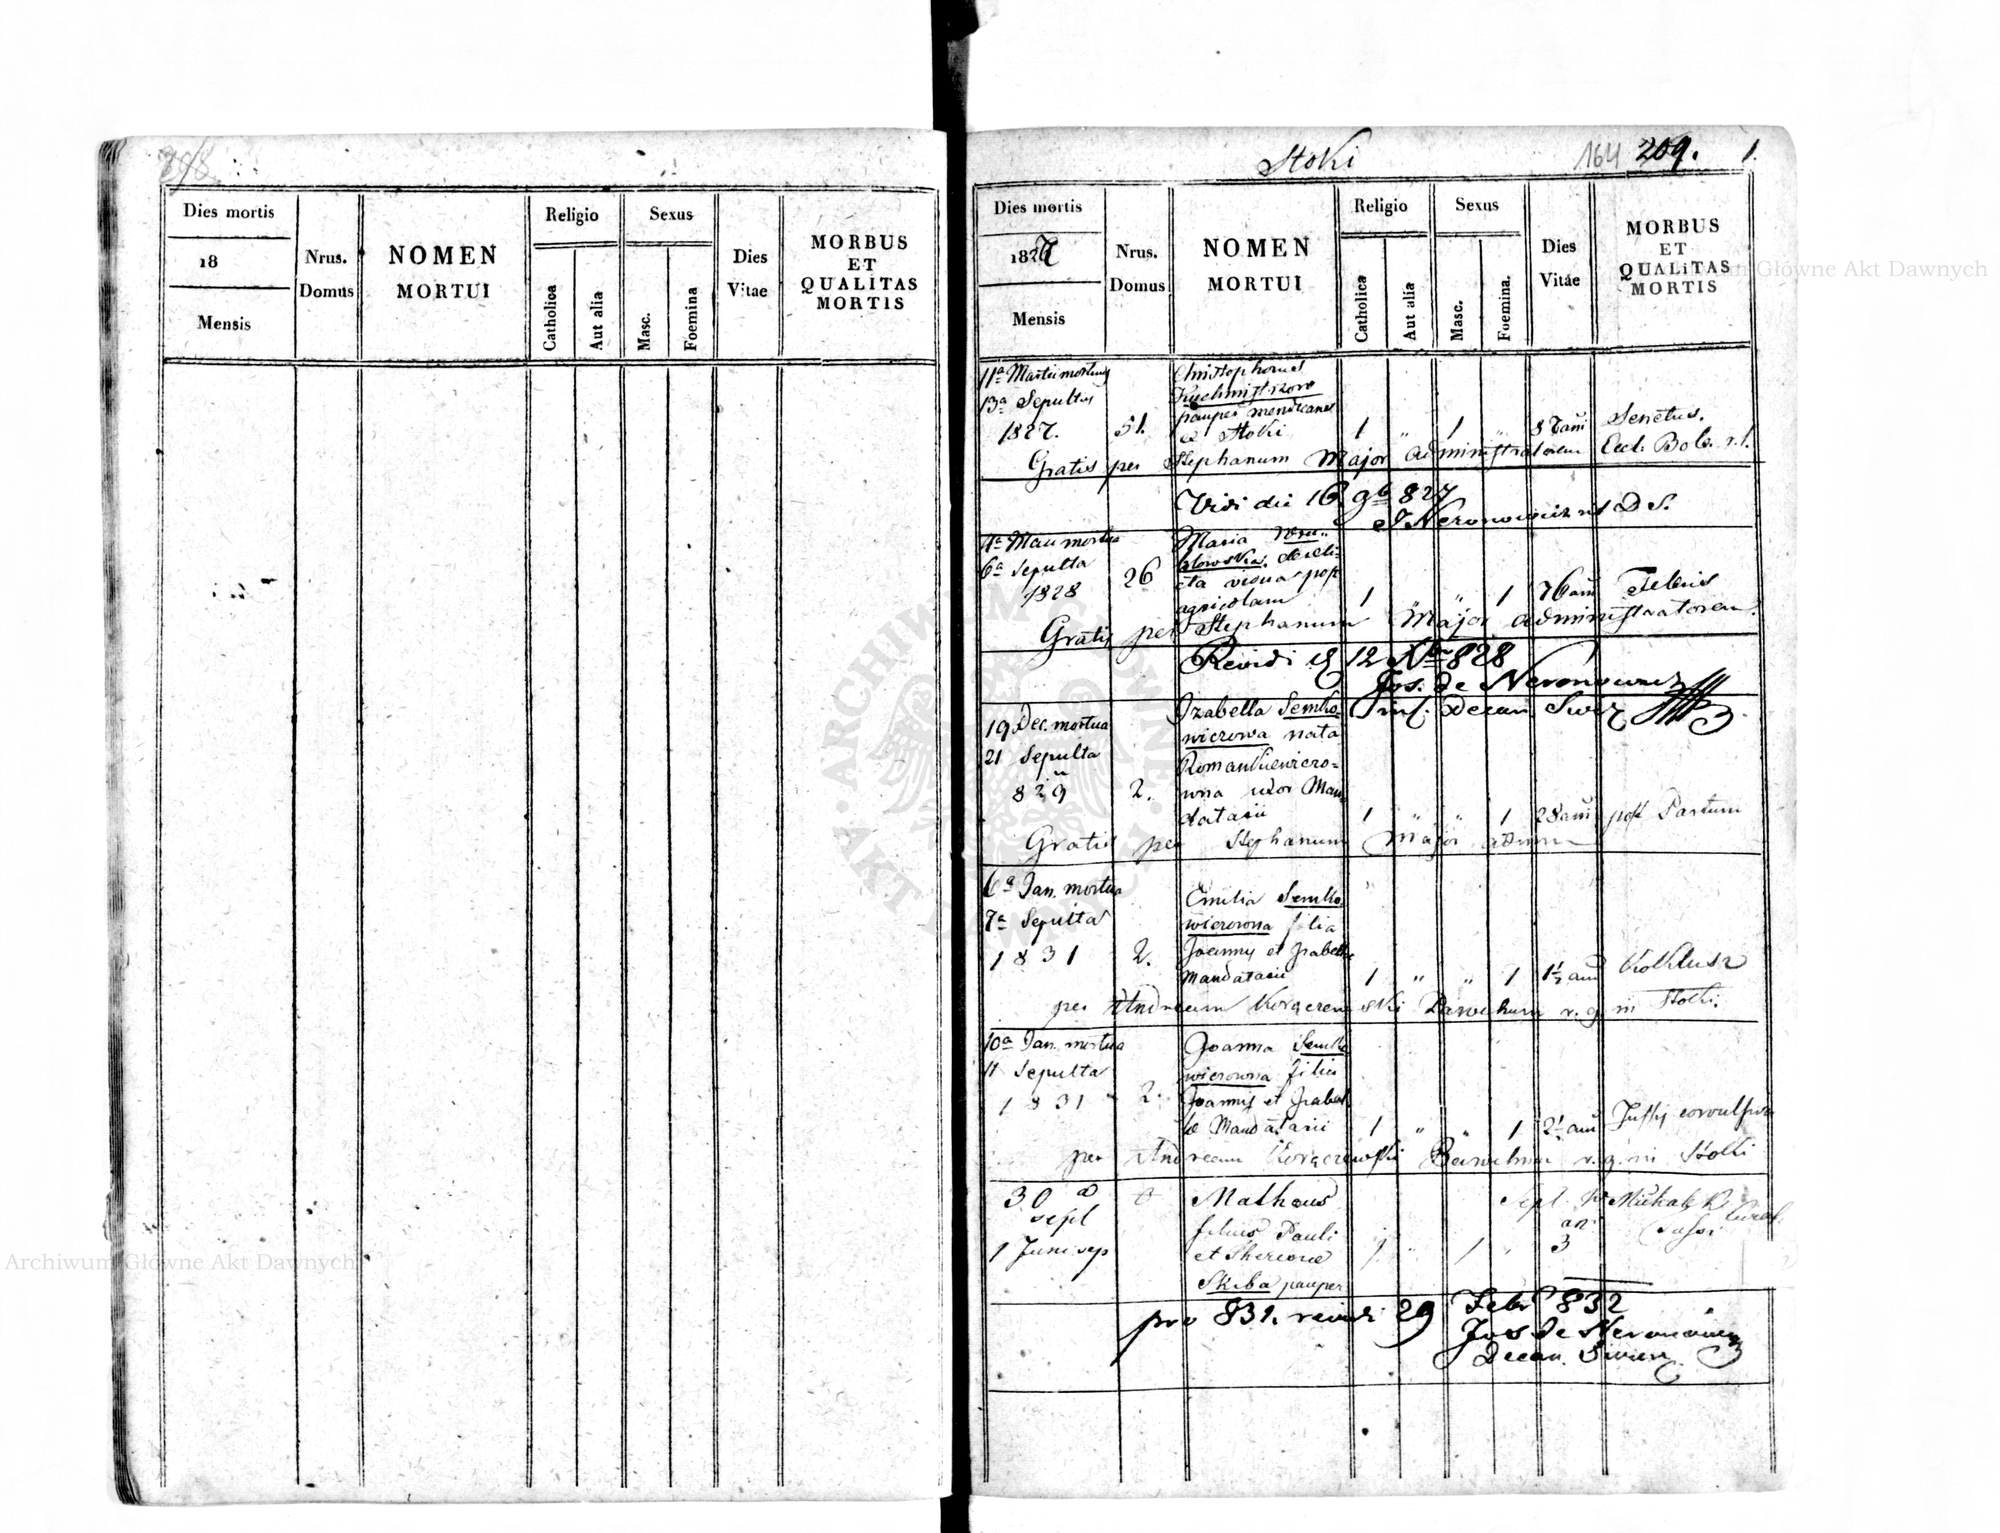 208.
Dies mortis
18
Mensis
Nrus.
Domus
NOMEN
MORTUI
Religio
Catholica
Aut alia
Sexus
Masc.
Foemina
Dies
Vitae
MORBUS
ET
QUALITAS
MORTIS
Stoki
164 209. 1.
Dies mortis
1827
Mensis
Nrus.
Domus
NOMEN
MORTUI
Religio
Catholica
Aut alia
Sexus
Masc.
Foemina.
Dies
Vitae
MORBUS
ET
QUALITAS
MORTIS
11a Martii mortuus
13a Sepultus
1827.
51.
Christophorus
pauper mendicans
e Stoki
1 " 1 "
Senectus.
Gratis per Stephanum Major administratorem Eccl. Bob. r. l.
Vidi die 16 9b 827
J Neronowicz D S.
4a Maii mortua
6a Sepulta
1828
26
Maria
vidua post
agricolam
1 " " 1 76 an Febris
Gratis per Stephanum Major administratorem.
Revidi 12 Xbr 828
Jos. de Neronowicz
Decan Swirz
19 Dec. mortua
21 Sepulta
829
2.
Izabella Semko-
wiczowa nata
Romankiewiczo-
wna uxor Man
datarii
1 " " 1 28 an post Partum
Gratis per Stephanum Major adm
6a Jan. mortua
7a Sepulta
1831
2.
Emilia Semko
wiczowna filia
Joannis et Izabella
Mandatarii
1 " " 1 1½ an Koklusz
per Andream Parochum r. g. in Stoki.
10a Jan. mortua
11 Sepulta
1831
2.
Joanna Semko
wiczowna filia
Joannis et Izabel
lae Mandatarii
1 " " 1 2½ an Tussis
per Andream Parochum r. g. in Stoki
30
sept
1 Juni sep
Matheus
filius Pauli
et
Skiba pauper
1 " 1 "
an
3
Sept
pro 831. revidi 29 Febr 832
Jos de Neronowicz
Decan. Swirz
Archiwum Główne Akt Dawnych
Archiwum Główne Akt Dawnych
ARCHIWUM GŁÓWNE AKT DAWNYCH